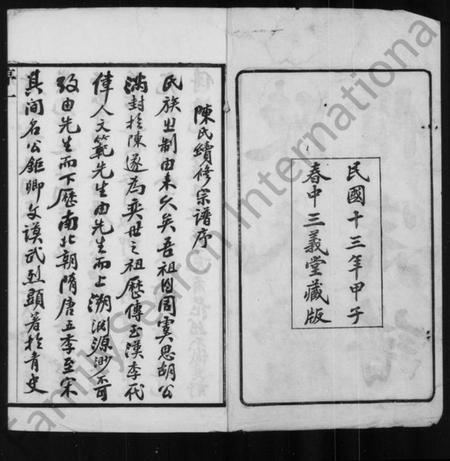 民國十三年甲子
春中三義堂藏版
陳氏續修宗譜序
民族之制由来久矣吾祖因周虞思胡公
滿封於陳遂為奕世之祖歷傳至漢季代
偉人文範先生由先生而上溯淵源渺不可
攷由先生而下歷南北朝隋唐五季至宋
其間名公鉅卿文謨武烈顯著於青史
FamilySearch International